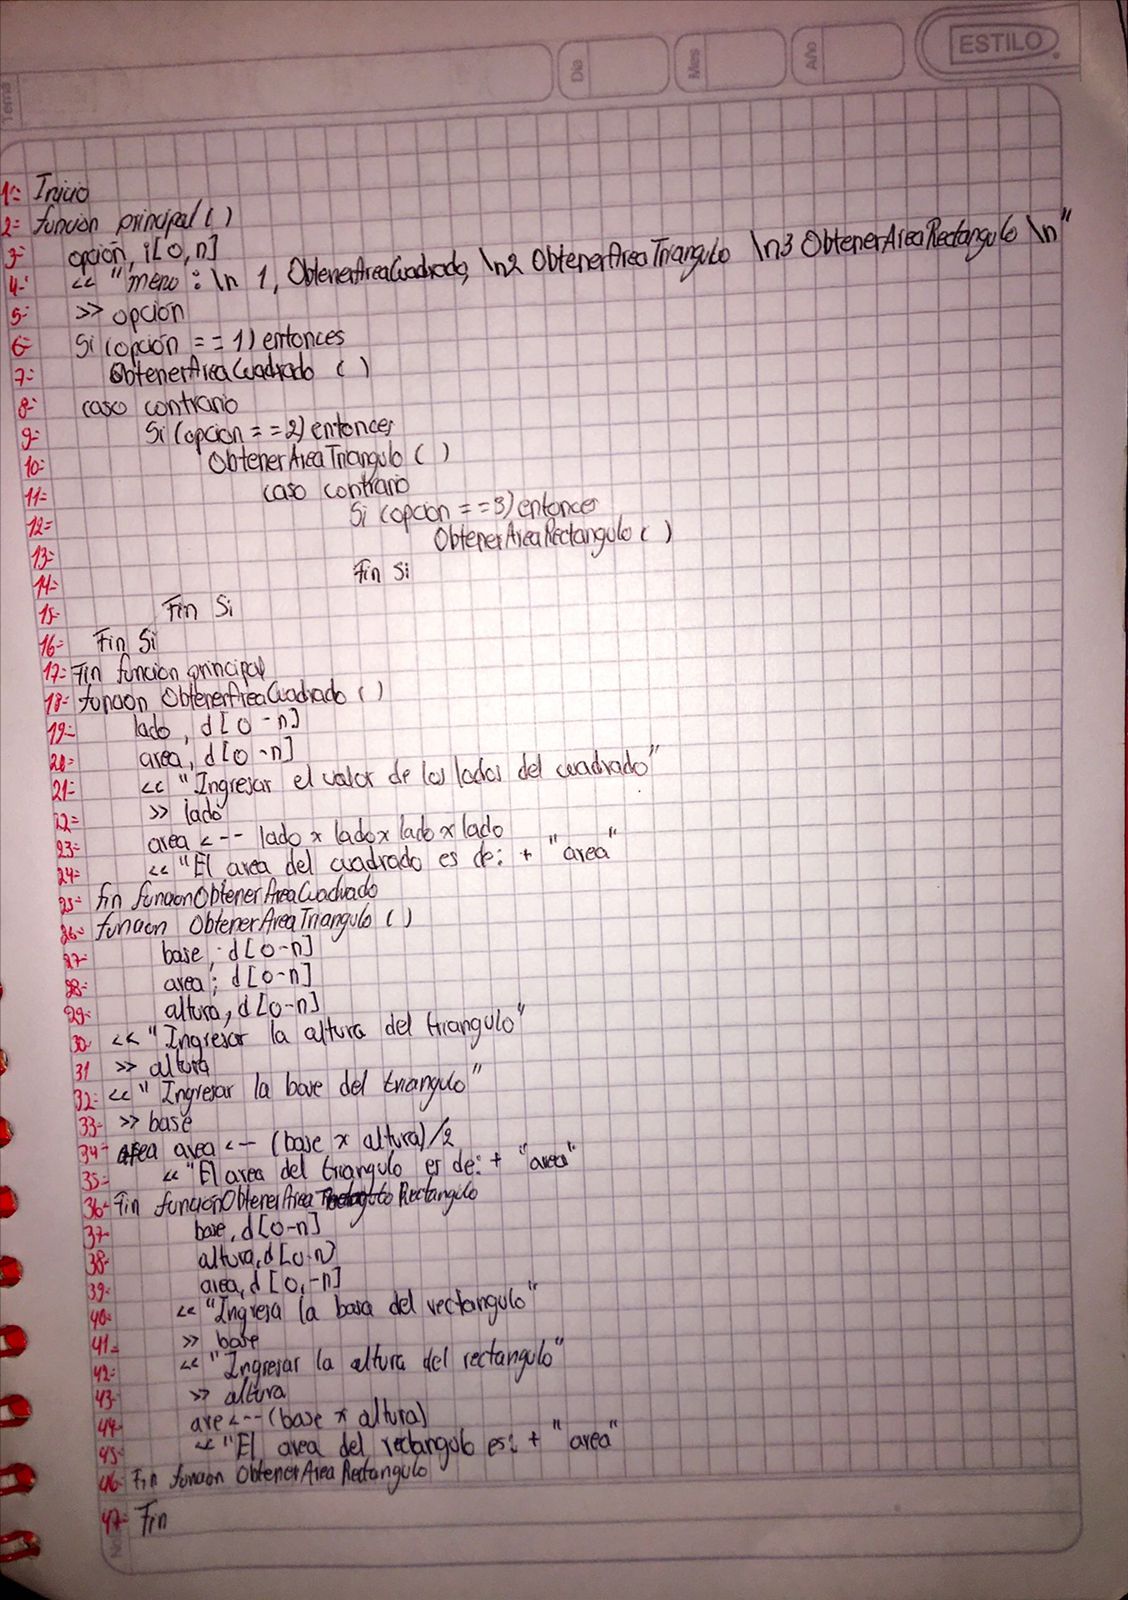 Tema
Dia
Mes
Año
ESTILO
1= Inicio
2= funcion principal ( )
3= opcion, i[0,n]
4= << "meno : \n 1, ObtenerAreaCuadrado, \n2 ObtenerAreaTriangulo \n3 ObtenerAreaRectangulo \n"
5= >> opcion
6= Si (opción == 1) entonces
7= ObtenerAreaCuadrado ( )
8= caso contrario
9= Si (opcion == 2) entonces
10= ObtenerAreaTriangulo ( )
11= caso contrario
12= Si (opcion == 3) entonces
13= ObtenerAreaRectangulo ( )
14= Fin Si
15= Fin Si
16= Fin Si
17= Fin funcion principal
18= funcion ObtenerAreaCuadrado ( )
19= lado, d[0-n]
20= area, d[0-n]
21= << "Ingresar el valor de los lados del cuadrado"
22= >> lado
23= area <-- lado x lado x lado x lado
24= << "El area del cuadrado es de: + "area"
25= fin funcionObtenerAreaCuadrado
26= funcion ObtenerAreaTriangulo ( )
27= base, d[0-n]
28= area, d[0-n]
29= altura, d[0-n]
30= << "Ingresar la altura del triangulo"
31 >> altura
32= << "Ingresar la base del triangulo"
33= >> base
34= area area <-- (base x altura)/2
35= << "El area del triangulo es de: + "area"
36= Fin funcionObtenerArea Rectangulo
37= base, d[0-n]
38= altura, d[0-n]
39= area, d[0,-n]
40= << "Ingresa la basa del rectangulo"
41= >> base
42= << "Ingresar la altura del rectangulo"
43= >> altura
44= are <-- (base x altura)
45= << "El area del rectangulo es: + "area"
46= Fin funcion ObtenerAreaRectangulo
47= Fin